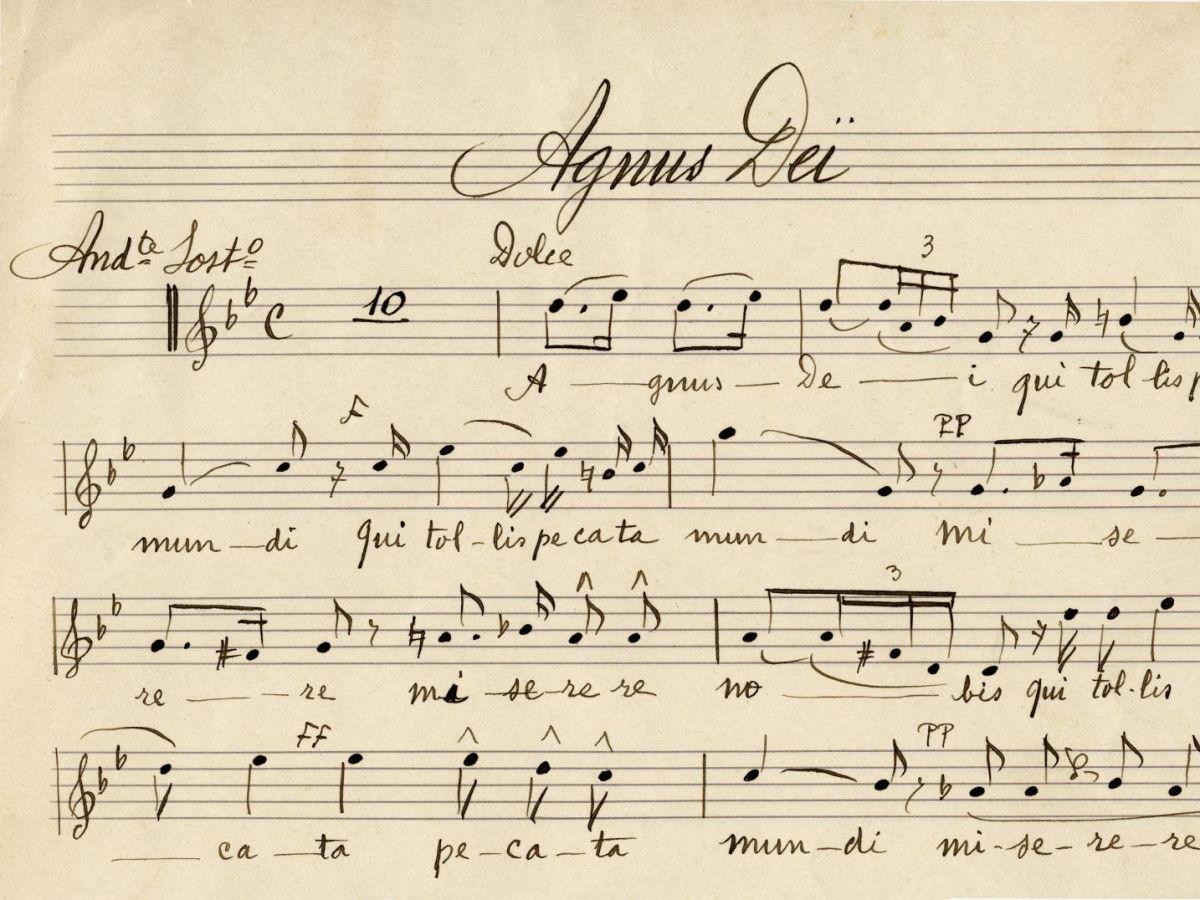 Agnus Deï
Andte Sosto Dolce
10 3
A — gnus — De — i qui tol-lis p
F PP
mun — di qui tol-lis pecata mun — di Mi — se —
3
re — — re mi-se-re re no — bis qui tol-lis
FF PP
— ca — ta pe-ca-ta mun-di mi-se-re-re